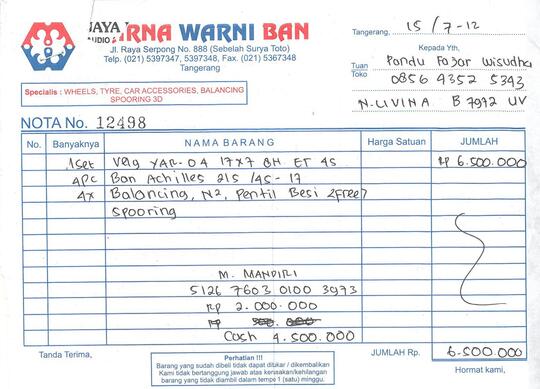 JAYA
AUDIO
RNA WARNI BAN
Jl. Raya Serpong No. 888 (Sebelah Surya Toto)
Telp. (021) 5397347, 5397348, Fax. (021) 5367348
Tangerang
Specialis : WHEELS, TYRE, CAR ACCESSORIES, BALANCING
SPOORING 3D
Tangerang, 15/7-12
Kepada Yth,
Tuan Pandu Fajar Wisudha
Toko 0856 9352 5343
N.LIVINA B 7972 UV
NOTA No. 12498
No. Banyaknya NAMA BARANG Harga Satuan JUMLAH
1 Set Velg YAR-04 17x7 BH ET 45 Rp 6.500.000
4 PC Ban Achilles 215/45-17
4x Balancing, N2, Pentil Besi 2 Free 7
Spooring
M. MANDIRI
5126 7603 0100 3973
Rp 2.000.000
Rp
Cash 4.500.000
Tanda Terima,
Perhatian !!!
Barang yang sudah dibeli tidak dapat ditukar / dikembalikan
Kami tidak bertanggung jawab atas kerusakan/kehilangan
barang yang tidak diambil dalam tempe 1 (satu) minggu.
JUMLAH Rp. 6.500.000
Hormat kami,